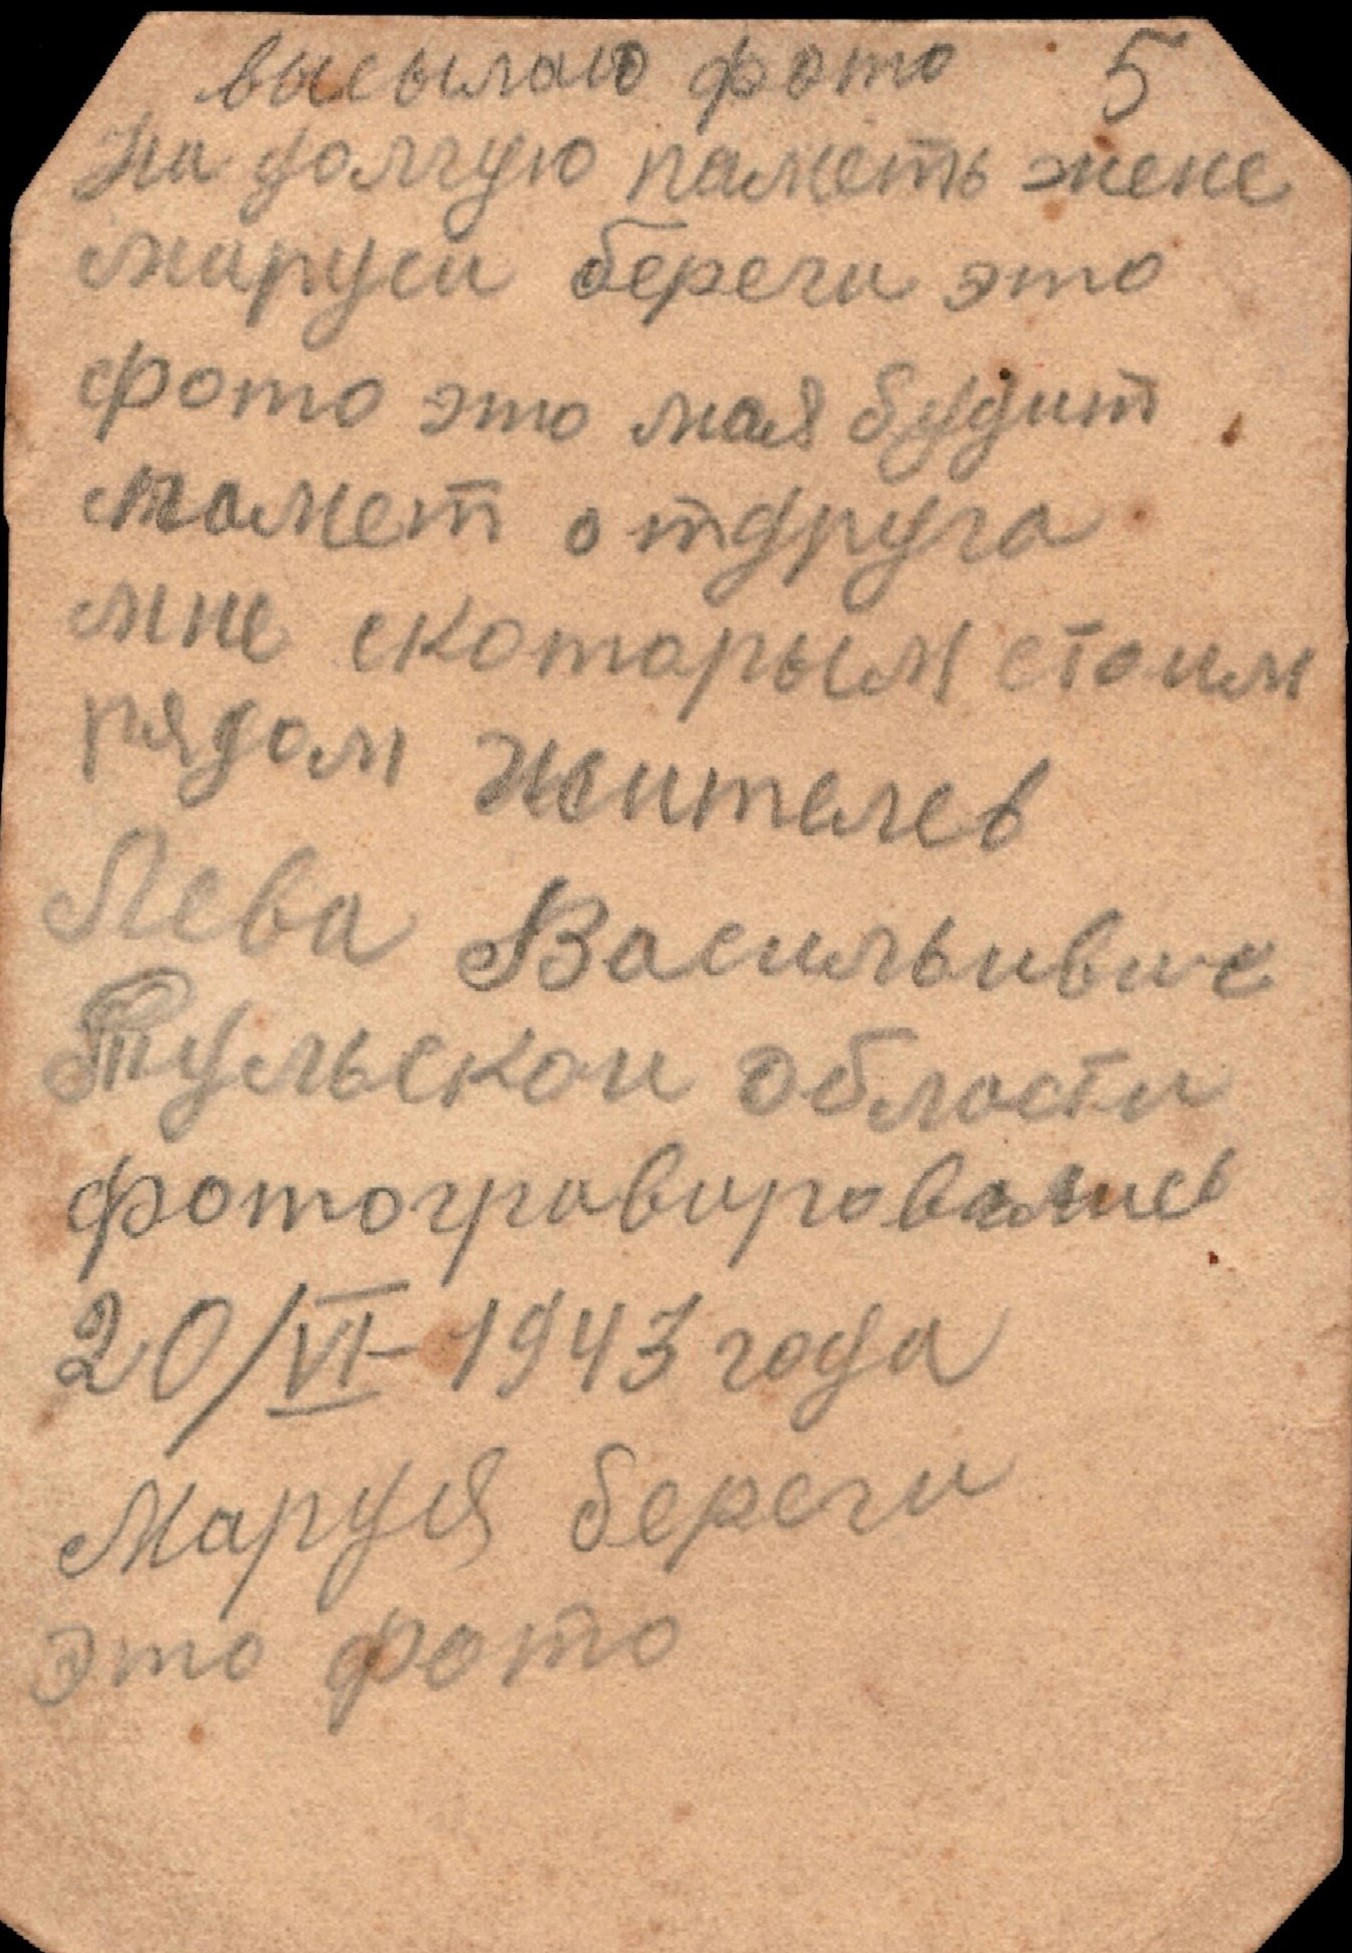 высылаю фото 5
На долгую паметь жене
маруси береги это
фото это мая будит
памет отдруга
мне скоторым стоим
рядом Жителев
Лева Васильивич
Тульскои области
фотогравировались
20/VI-1943 года
Маруся береги
это фото